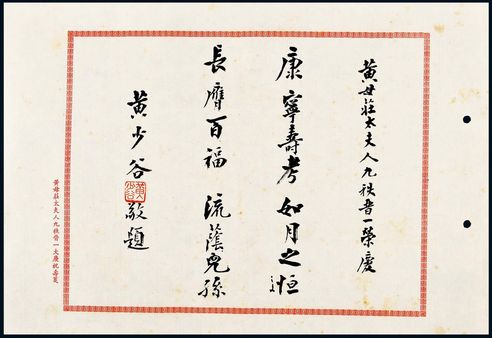 黃母莊太夫人九秩晉一榮慶
康寧壽考如月之恒
長膺百福 流蔭兒孫
黃少谷敬題
黃少谷
黃母莊太夫人九秩晉一大慶祝壽箋